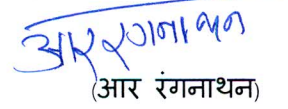 आर रंगनाथन
(आर रंगनाथन)